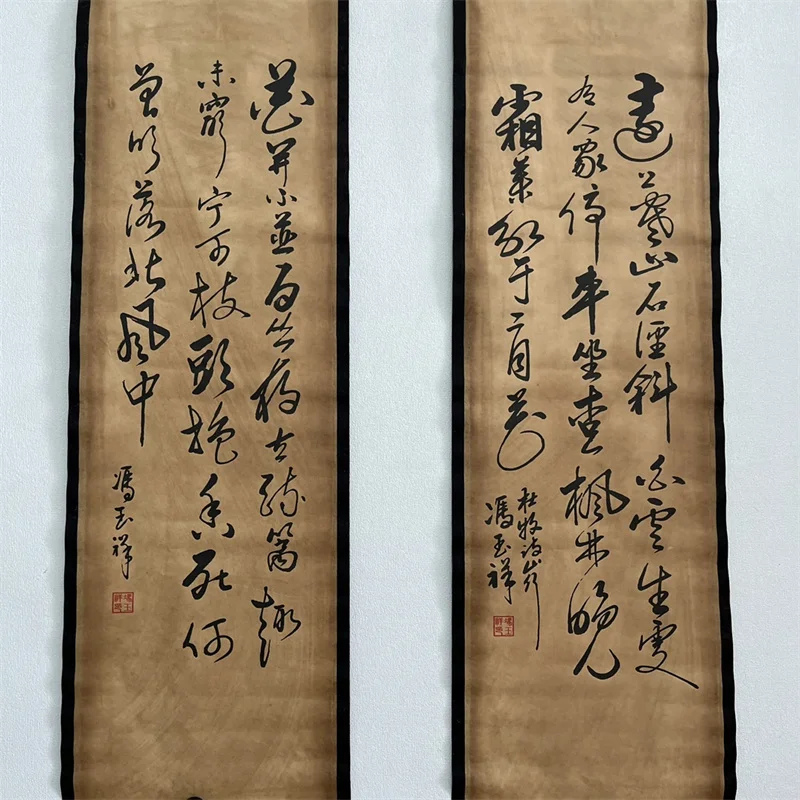 遠上寒山石徑斜白雲生處
有人家停車坐愛楓林晚
霜葉紅于二月花
杜牧詩山行
馮玉祥
花開不並百丛獨立疏籬趣
未窮宁可枝頭抱香死何
曾吹落北風中
馮玉祥